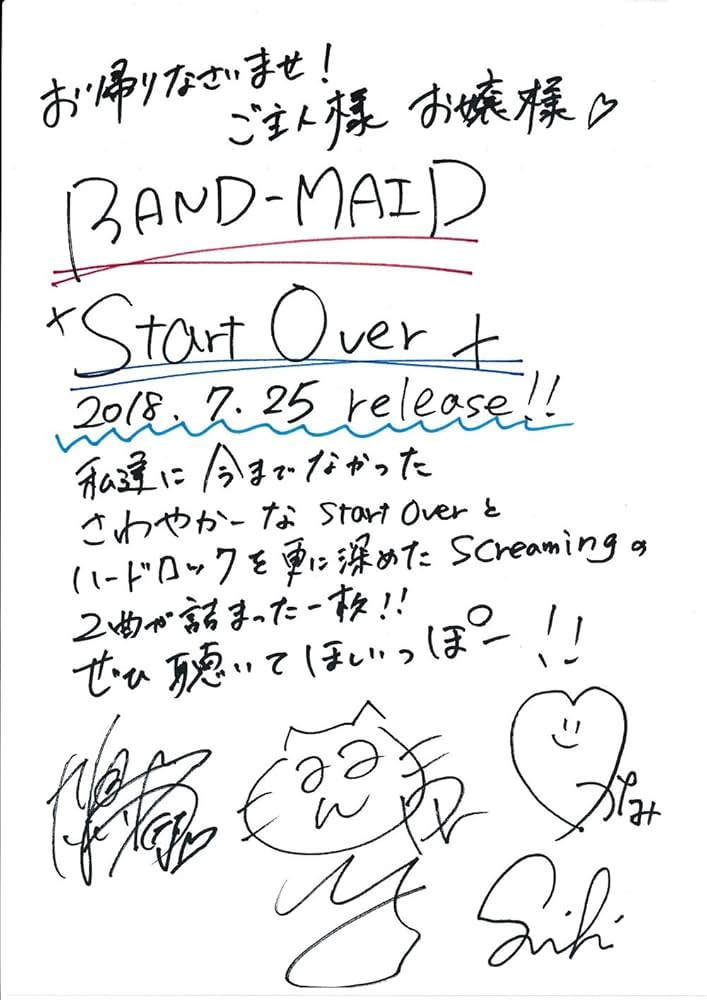 お帰りなさいませ!
ご主人様 お嬢様♡
BAND-MAID
+Start Over+
2018.7.25 release!!
私達に今までなかった
さわやかーな Start Overと
ハードロックを更に深めた Screamingの
2曲が詰まった一枚!!
ぜひ聴いてほしいっぽー!!
かなみ